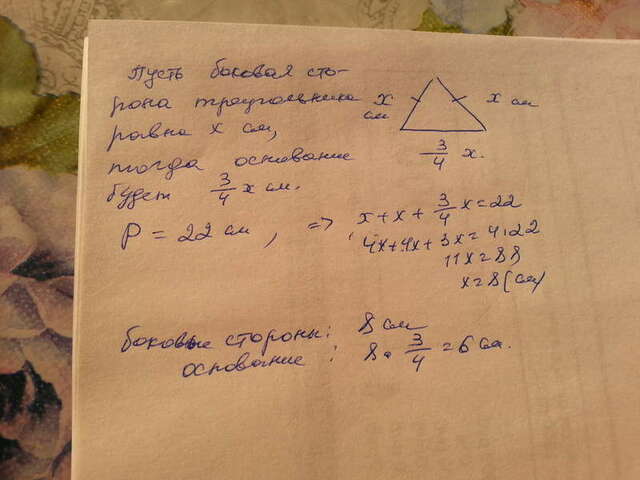 Пусть боковая сто-
рона треугольника
равна x см,
тогда основание
будет 3/4 x см.
x см
x см
3/4 x.
P = 22 см, =>
x + x + 3/4 x = 22
4x + 4x + 3x = 4·22
11x = 88
x = 8 (см)
боковые стороны: 8 см
основание: 8 · 3/4 = 6 см.